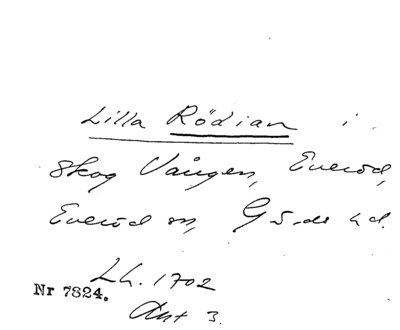 Lilla Rödian i
Skog Vången, Everöd,
Everöd sn, G ä.de hd.
Lh. 1702
Nr 7824.
Akt 3.